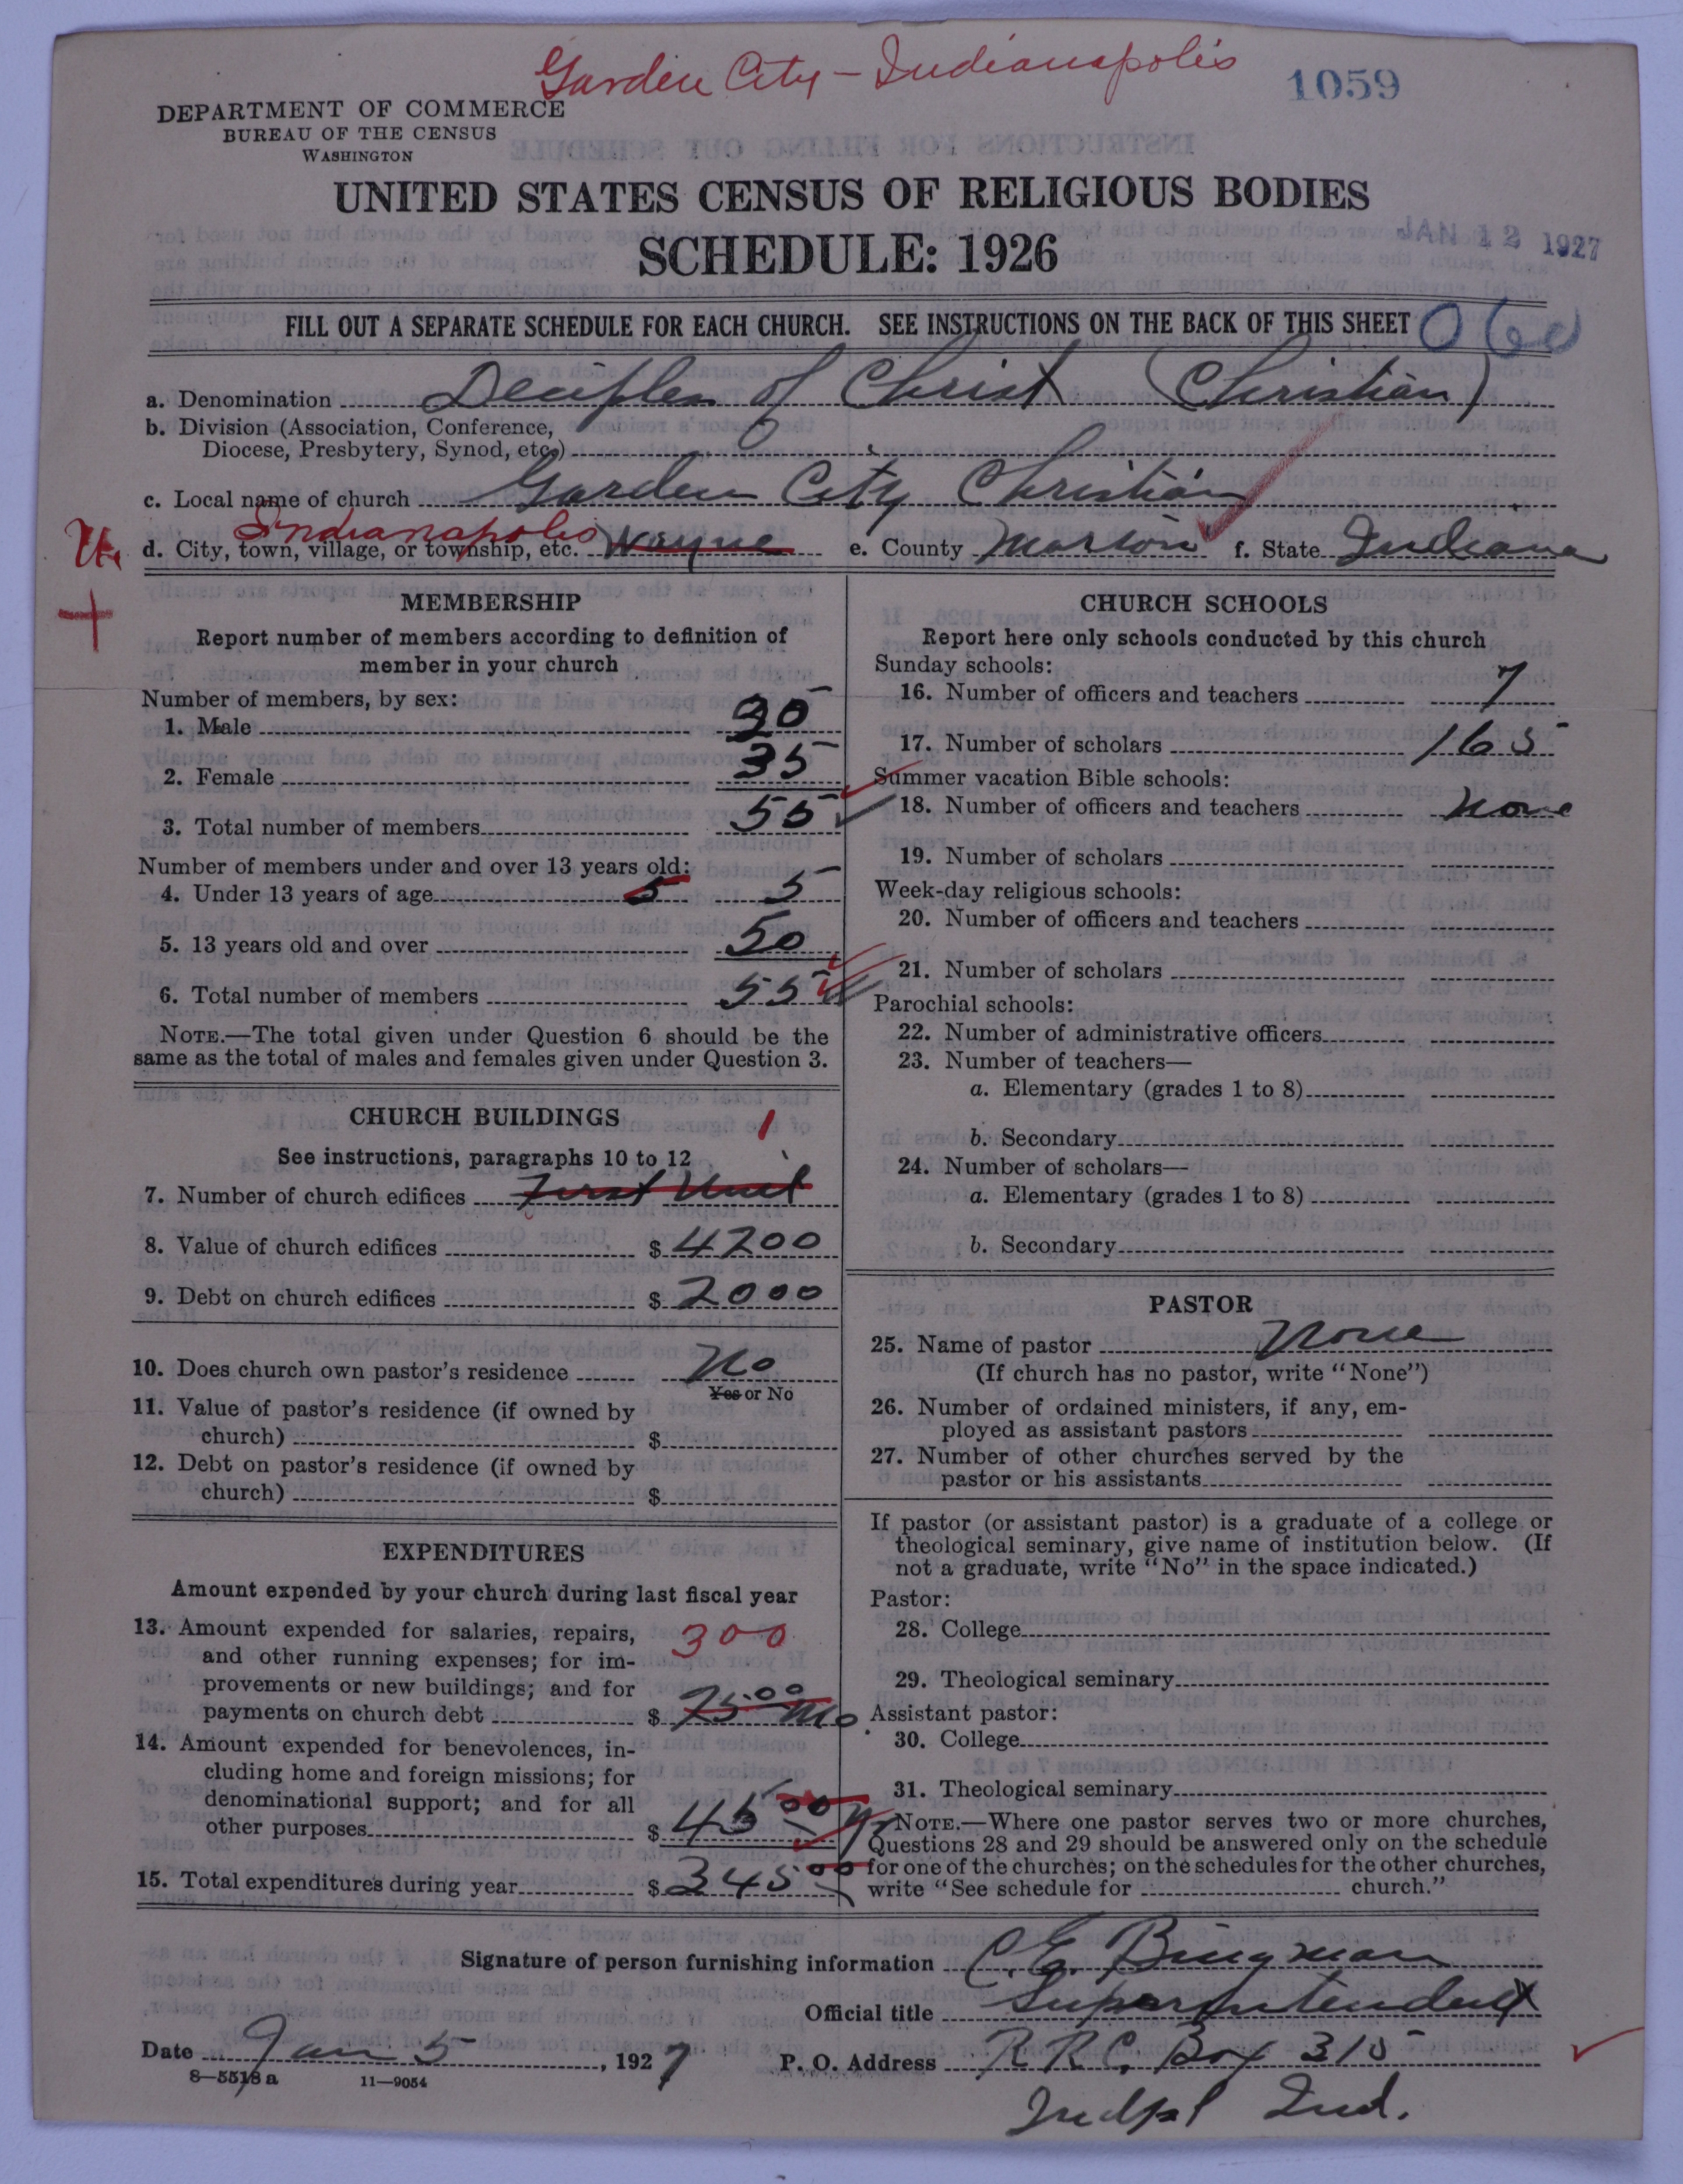 Garden City - Indianapolis
1059
DEPARTMENT OF COMMERCE
BUREAU OF THE CENSUS
WASHINGTON
UNITED STATES CENSUS OF RELIGIOUS BODIES
SCHEDULE: 1926
JAN 12 1927
FILL OUT A SEPARATE SCHEDULE FOR EACH CHURCH. SEE INSTRUCTIONS ON THE BACK OF THIS SHEET
a. Denomination Deciples of Christ (Christian)
b. Division (Association, Conference,
Diocese, Presbytery, Synod, etc.)
c. Local name of church Garden City Christian
Indianapolis
d. City, town, village, or township, etc. Wayne e. County Marion f. State Indiana
MEMBERSHIP
Report number of members according to definition of
member in your church
Number of members, by sex:
1. Male
2. Female 35
3. Total number of members 55
Number of members under and over 13 years old:
4. Under 13 years of age 5 5
5. 13 years old and over 50
6. Total number of members 55
NOTE.—The total given under Question 6 should be the
same as the total of males and females given under Question 3.
CHURCH BUILDINGS
1
See instructions, paragraphs 10 to 12
7. Number of church edifices First Unit
8. Value of church edifices $ 4200
9. Debt on church edifices $ 2000
10. Does church own pastor's residence No
Yes or No
11. Value of pastor's residence (if owned by
church) $
12. Debt on pastor's residence (if owned by
church) $
EXPENDITURES
Amount expended by your church during last fiscal year
13. Amount expended for salaries, repairs, 300
and other running expenses; for im-
provements or new buildings; and for
payments on church debt $ 25.00 Mo
14. Amount expended for benevolences, in-
cluding home and foreign missions; for
denominational support; and for all
other purposes $ 45 00
15. Total expenditures during year $ 345 00
CHURCH SCHOOLS
Report here only schools conducted by this church
Sunday schools:
16. Number of officers and teachers 7
17. Number of scholars 165
Summer vacation Bible schools:
18. Number of officers and teachers None
19. Number of scholars
Week-day religious schools:
20. Number of officers and teachers
21. Number of scholars
Parochial schools:
22. Number of administrative officers
23. Number of teachers—
a. Elementary (grades 1 to 8)
b. Secondary
24. Number of scholars—
a. Elementary (grades 1 to 8)
b. Secondary
PASTOR
25. Name of pastor None
(If church has no pastor, write "None")
26. Number of ordained ministers, if any, em-
ployed as assistant pastors
27. Number of other churches served by the
pastor or his assistants
If pastor (or assistant pastor) is a graduate of a college or
theological seminary, give name of institution below. (If
not a graduate, write "No" in the space indicated.)
Pastor:
28. College
29. Theological seminary
Assistant pastor:
30. College
31. Theological seminary
NOTE.—Where one pastor serves two or more churches,
Questions 28 and 29 should be answered only on the schedule
for one of the churches; on the schedules for the other churches,
write "See schedule for church."
Signature of person furnishing information C. E. Bingman
Official title Superintendent
Date Jan 5, 1927 P. O. Address R R C. Box 315
8—5518a 11—9054
Indpl Ind.